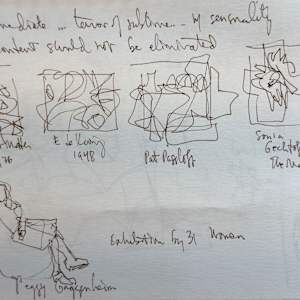 terror of sublime .. by sensuality
content should not be eliminated
E de Kooning
1948
Pat Passlof
Sonia
Gechtoff
The Ma
Exhibition by 31 Women
Peggy Guggenheim